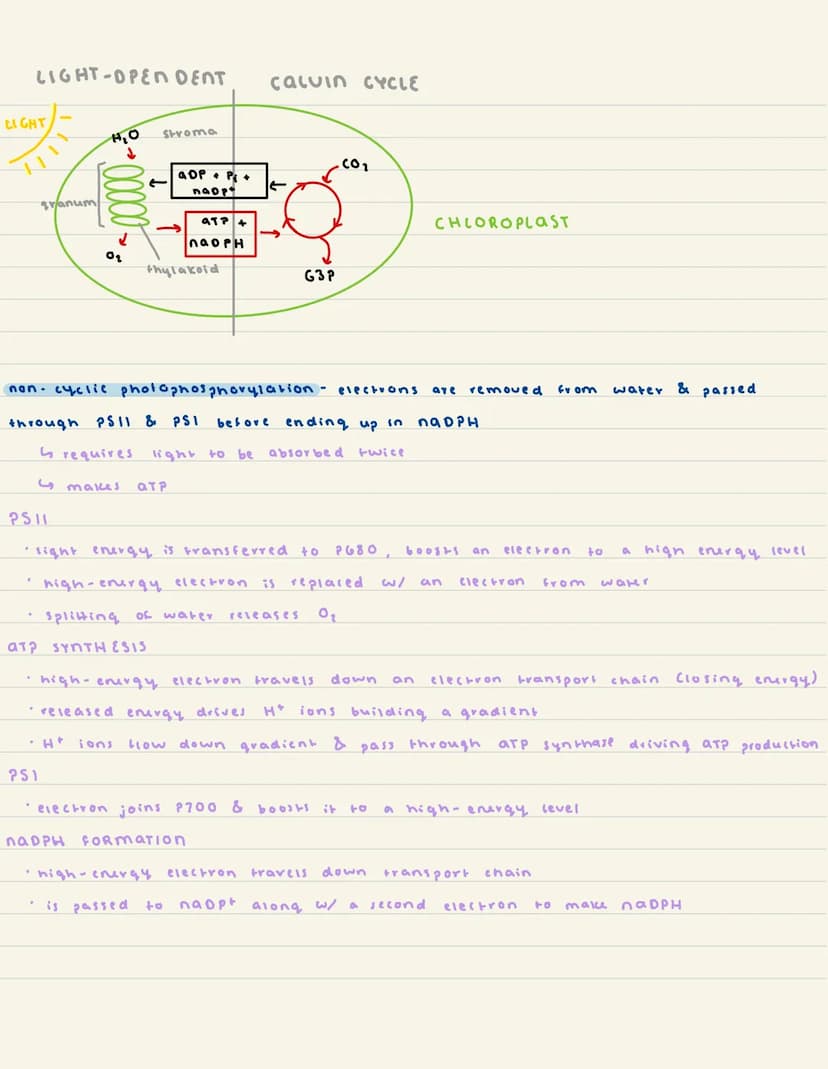 LIGHT-DPENDENT CALVIN CYCLE
LIGHT
H₂O
stroma
CO₂
ADP + Pi +
NADP+
granum
ATP +
NADPH
CHLOROPLAST
O₂
thylakoid
G3P
non-cyclic photophosphorylation - electrons are removed from water & passed
through PSII & PSI before ending up in NADPH
↳ requires light to be absorbed twice
↳ makes ATP
PSII
• light energy is transferred to P680, boosts an electron to a high energy level
• high-energy electron is replaced w/ an electron from water
• splitting of water releases O₂
ATP SYNTHESIS
• high-energy electron travels down an electron transport chain (losing energy)
• released energy drives H+ ions building a gradient
• H+ ions flow down gradient & pass through ATP synthase driving ATP production
PSI
• electron joins P700 & boosts it to a high-energy level
NADPH FORMATION
• high-energy electron travels down transport chain
• is passed to NADP+ along w/ a second electron to make NADPH